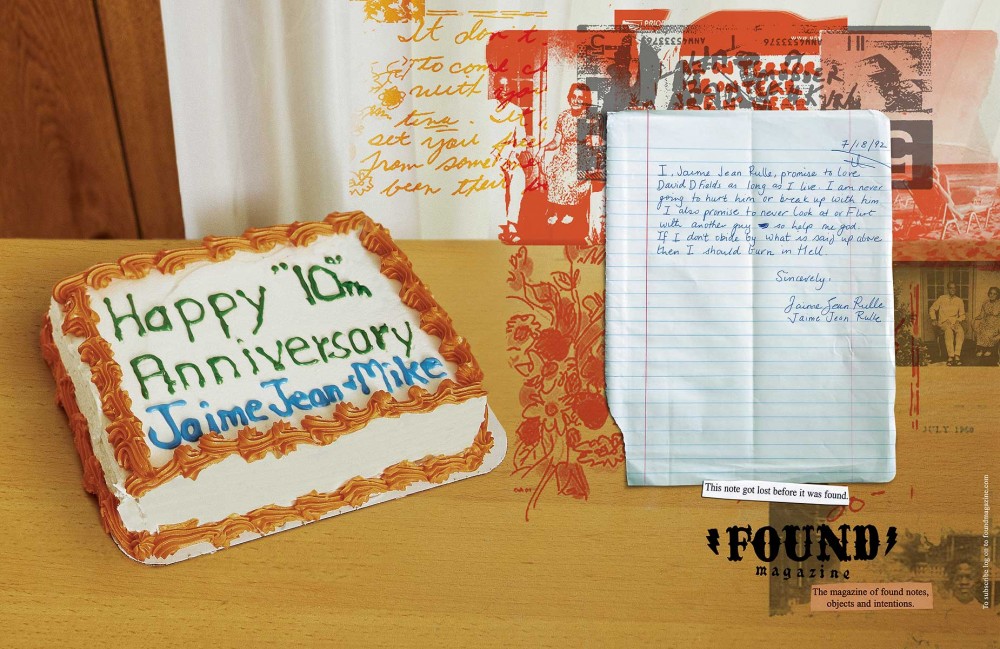 It don't
to come
with
tina. It
set you free
from some
been their
PRIOR
ANW4533376
ANW4533376
Happy "10"th
Anniversary
Jaime Jean + Mike
7/18/92
I, Jaime Jean Rulle, promise to love
David D Fields as long as I live. I am never
going to hurt him or break up with him.
I also promise to never look at or Flirt
with another guy so help me god.
If I don't abide by what is said up above
then I should burn in Hell.
Sincerely,
Jaime Jean Rulle
Jaime Jean Rulle
JULY 1969
This note got lost before it was found.
FOUND
magazine
The magazine of found notes,
objects and intentions.
To subscribe log on to foundmagazine.com